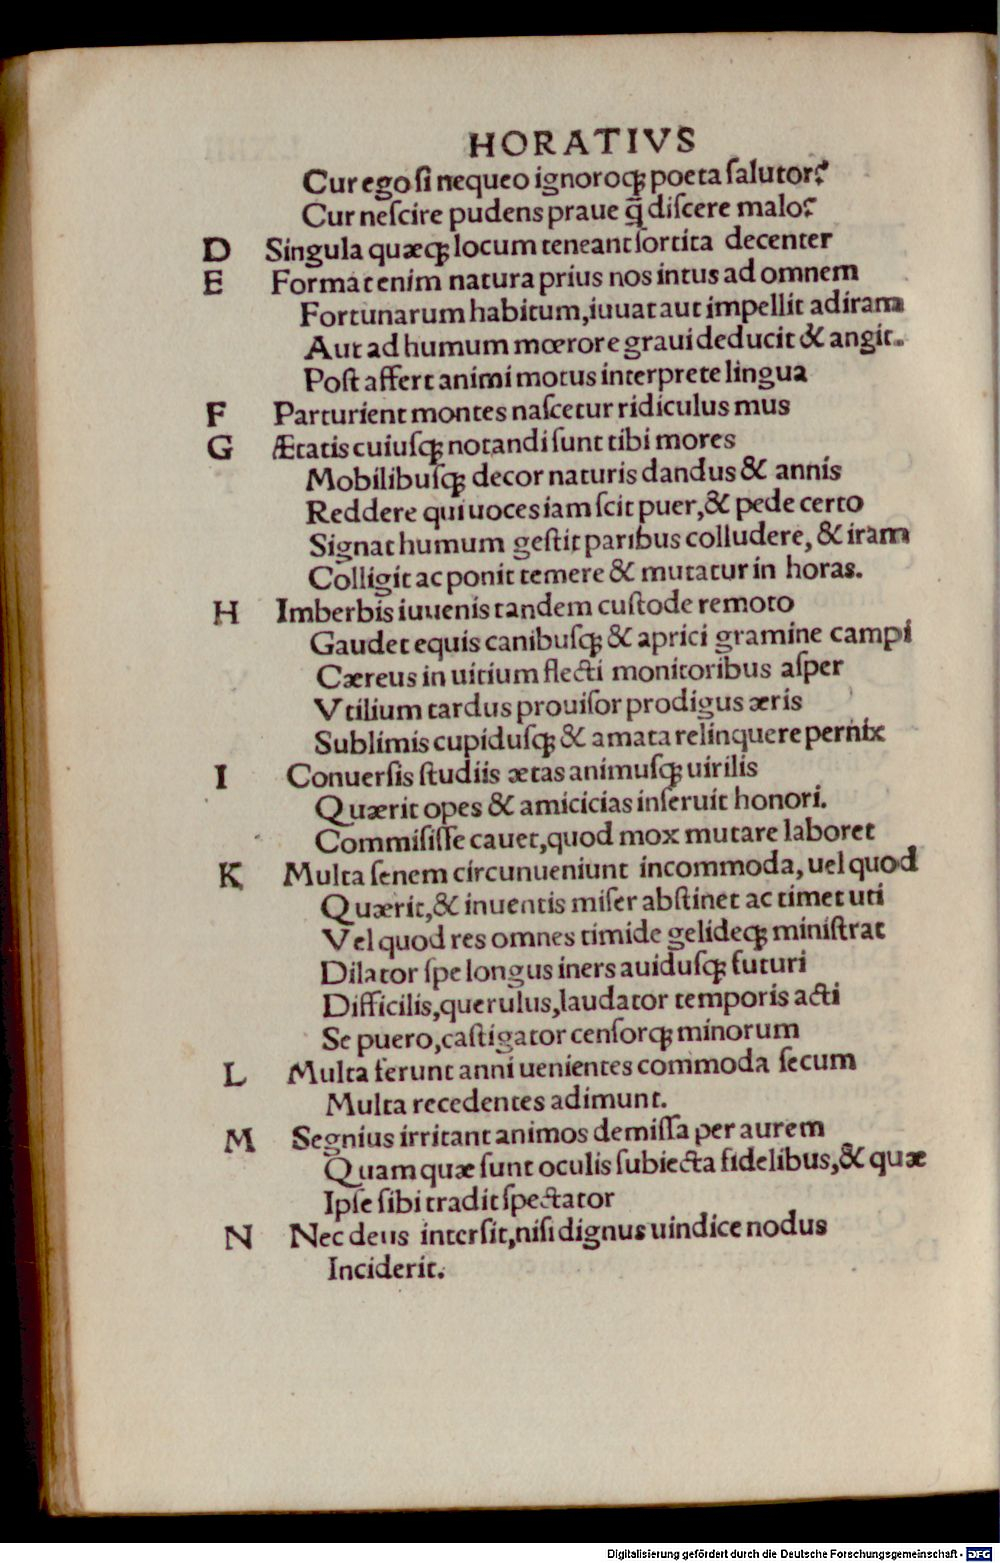 HORATIVS
Cur ego si nequeo ignoroqꝫ poeta salutor?
Cur nescire pudens praue q̃ discere malo?
D Singula quæqꝫ locum teneant sortita decenter
E Format enim natura prius nos intus ad omnem
Fortunarum habitum, iuuat aut impellit ad iram
Aut ad humum mœrore graui deducit & angit.
Post affert animi motus interprete lingua
F Parturient montes nascetur ridiculus mus
G Ætatis cuiusqꝫ notandi sunt tibi mores
Mobilibusqꝫ decor naturis dandus & annis
Reddere qui uoces iam scit puer, & pede certo
Signat humum gestit paribus colludere, & iram
Colligit ac ponit temere & mutatur in horas.
H Imberbis iuuenis tandem custode remoto
Gaudet equis canibusqꝫ & aprici gramine campi
Cæreus in uitium flecti monitoribus asper
Vtilium tardus prouisor prodigus æris
Sublimis cupidusqꝫ & amata relinquere pernix
I Conuersis studiis ætas animusqꝫ uirilis
Quærit opes & amicicias inseruit honori.
Commisisse cauet, quod mox mutare laboret
K Multa senem circunueniunt incommoda, uel quod
Quærit, & inuentis miser abstinet ac timet uti
Vel quod res omnes timide gelideqꝫ ministrat
Dilator spe longus iners auidusqꝫ futuri
Difficilis, querulus, laudator temporis acti
Se puero, castigator censorqꝫ minorum
L Multa ferunt anni uenientes commoda secum
Multa recedentes adimunt.
M Segnius irritant animos demissa per aurem
Quam quæ sunt oculis subiecta fidelibus, & quæ
Ipse sibi tradit spectator
N Nec deus intersit, nisi dignus uindice nodus
Inciderit.
Digitalisierung gefördert durch die Deutsche Forschungsgemeinschaft - DFG